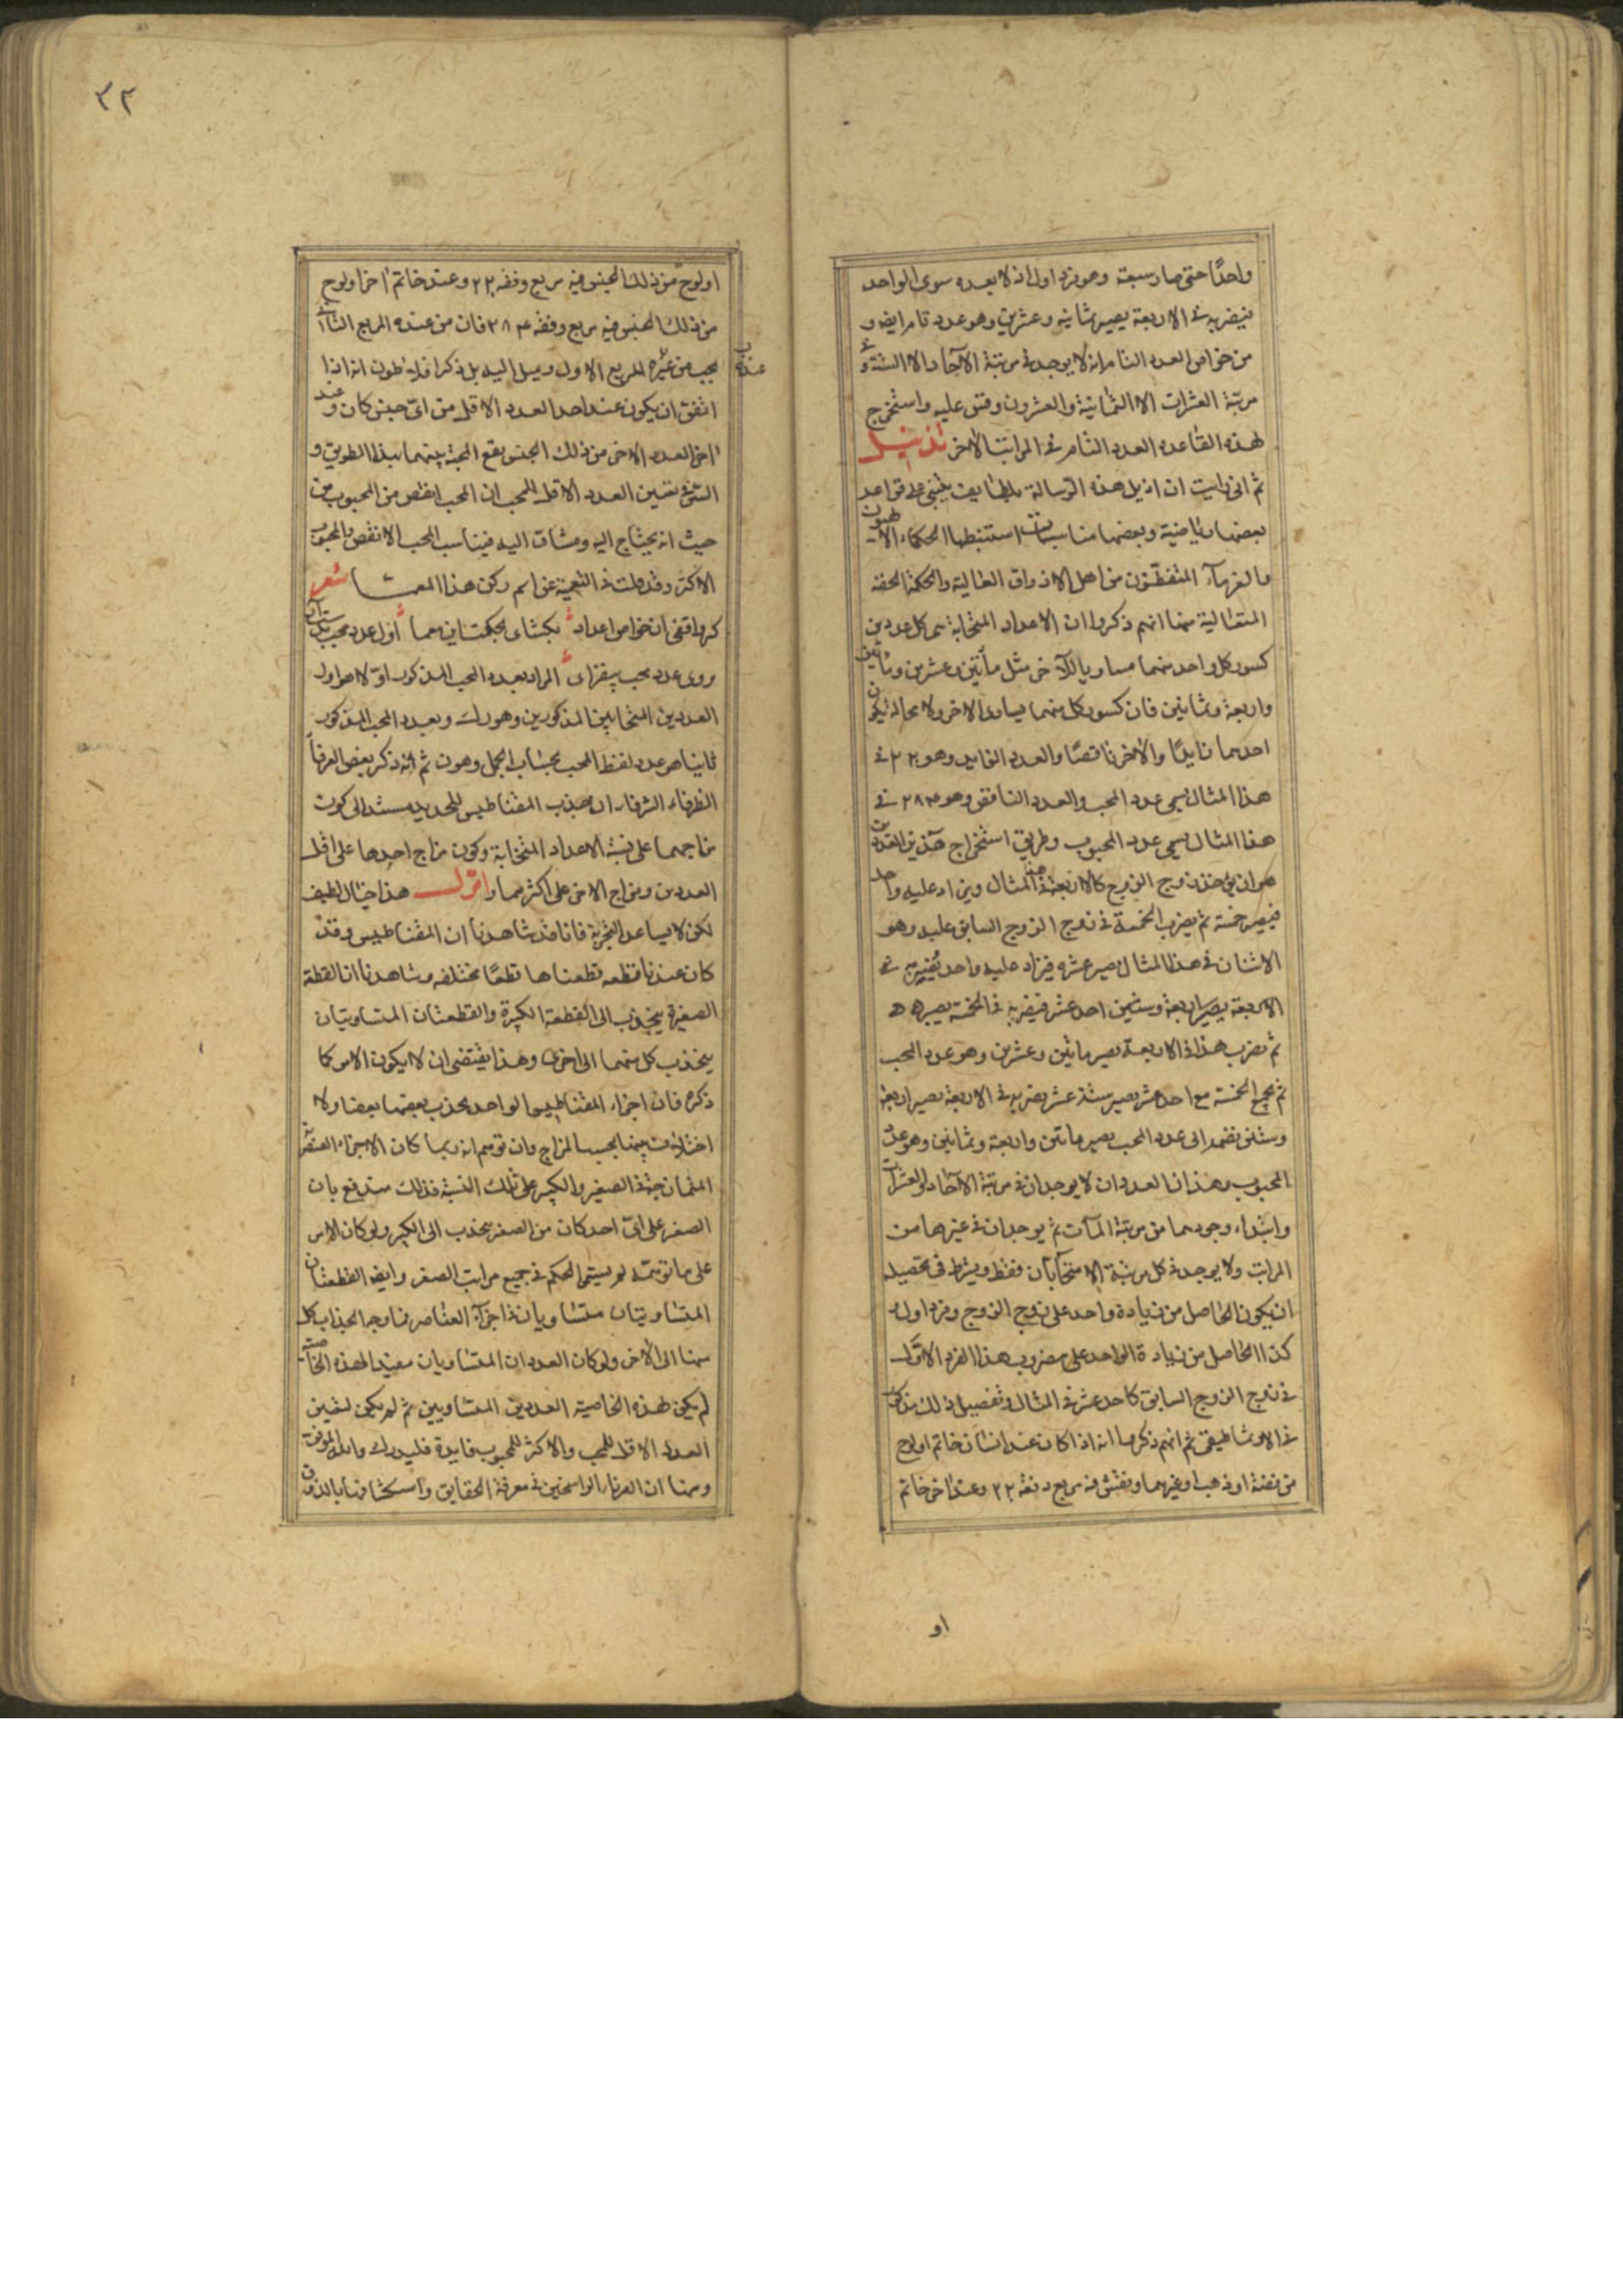 واحدًا حتى صار سبعة وهو فرد اول اذ لا يعده سوى الواحد
فيضربه في الاربعة يصير ثمانيه وعشرين وهو عدد تام ايضا و
من خواص العدد التام انه لا يوجد في مرتبة الآحاد الا الستة و في
مرتبة العشرات الا الثمانية والعشرون وقس عليه واستخرج
لهذه القاعده العدد التام في المراتب الاخر تذييل
ثم انى رايت ان اذيل هذه الرسالة بلطايف يبتنى على قواعد
بعضها رياضية وبعضها مناسبات استنبطها الحكماء الالهيون
والعرفآء المتفطنون من اهل الاذواق العالية والحكمة الحقة
المتعالية منها انهم ذكروا ان الاعداد المتحابة هى كل عددين
كسور كل واحد منهما مساو بالآخر مثل مأتين وعشرين ومأتين
واربعة وثمانين فان كسور كل منهما يساوى الاخر ولا محالة يكون
احدهما زايدًا والاخر ناقصًا والعدد الزايد وهو ٢٢٠ في
هذا المثال يسمى عدد المحب والعدد الناقص وهو ٢٨٤ في
هذا المثال يسمى عدد المحبوب وطريق استخراج هذين العددين
هو ان يؤخذ زوج الزوج كالاربعة في هذا المثال ويزاد عليه واحد
فيصير خمسة ثم يضرب الخمسة في زوج الزوج السابق عليه وهو
الاثنان في هذا المثال يصير عشره فيزاد عليه واحد فيضرب في
الاربعة يصير اربعة وستين احد عشر فيضربه في الخمسة يصير ٥٥
ثم يضرب هذا في الاربعة يصير ماتين وعشرين وهو عدد المحب
ثم يجمع الخمسة مع احد عشر يصير ستة عشر يضربه في الاربعة يصير اربعة
وستين نضمه الى عدد المحب يصير ماتين واربعة وثمانين وهو عدد
المحبوب وهذان العددان لا يوجدان في مرتبة الآحاد والعشرات
وابتداء وجودهما من مرتبة المآت ثم يوجدان في غيرها من
المراتب ولا يوجد في كل مرتبة الا متحآبان فقط ويشترط في تحصيله
ان يكون الحاصل من زيادة واحد على زوج الزوج وفرد اول و
كذا الحاصل من زيادة الواحد على مضروب هذا الفرد الاول
في زوج الزوج السابق كاحد عشر في المثال وتفصيل ذلك مذكور
في الارثماطيقى ثم انهم ذكروا انه اذا كان عند انسان خاتم او لوح
من فضة او ذهب او غيرهما ونقش فيه مربع وفقه ٢٢٠ وعند اخر خاتم
او
٣٢
او لوح من ذلك الجنس فيه مربع وفقه ٢٢٠ وعند خاتم اخر او لوح
من ذلك الجنس فيه مربع وفقه ٢٨٤ فان من عنده المربع الثانى
يحب من عنده المربع الاول ويميل اليه بل ذكر افلاطون انه اذا
اتفق ان يكون عند احد العدد الاقل من اى جنس كان وعند
اخر العدد الاخر من ذلك الجنس يقع المحبة بينهما بهذا الطريق و
السر في تعيين العدد الاقل للمحب ان المحب انقص من المحبوب من
حيث انه يحتاج اليه ومشتاق اليه فيناسب المحب الانقص والمحبوب
الاكثر وقد قلت في التعمية عن اسم ركن هذا المعما شعر
كر واقفى از خواص اعداد بكشاى بحكمت اين معما اول عدد محب
روى عدد محب بيفزاى المراد بعدد المحب المذكور اولا هو اول
العددين المتحابين المذكورين وهو رك وبعدد المحب المذكور
ثانيا هو عدد لفظ المحب بحساب الجمل وهو ن ثم انه ذكر بعض العرفآ
الظرفاء الشرفاء ان جذب المقناطيس للحديد مستند الى كون
مزاجهما على نسبة الاعداد المتحابة وكون مزاج احدها على اقل
العددين ومزاج الاخر على اكثرهما واقول هذا خيال لطيف
لكن لا يساعد التجربة فانا قد شاهدنا ان المقناطيس وقد
كان عندنا قطعه قطعناها قطعًا مختلفه وشاهدنا ان القطة
الصغيرة ينجذب الى القطعة الكبيرة والقطعتان المتساويتان
ينجذب كل منهما الى اخرى وهذا يقتضى ان لا يكون الامر كما
ذكره فان اجزاء المقناطيس الواحد يجذب بعضها بعضا ولا
اختلاف بينها بحسب المزاج وان توهم انه ربما كان الاجزاء العنصرية
في الصغير والكبير على تلك النسبة فذلك مندفع بان
الصغير على اى احد كان من الصغر ينجذب الى الكبير ولو كان الامر
على ما توهمه لم يستمر الحكم في جميع مراتب الصغر وايضا القطعتان
المتساويتان متساويان في اجزآء العناصر فما وجه انجذاب كل
منها الى الاخر ولو كان العددان المتساويان مفيد لهذه الخاصية
لم يكن لهذه الخاصية العددين المتساويين ثم لم يكن لتعيين
العدد الاقل للمحب والاكثر للمحبوب فايدة فليدرك والله الموفق
ومنها ان العرفاء الراسخين في معرفة الحقايق واستكشافها بالذوق